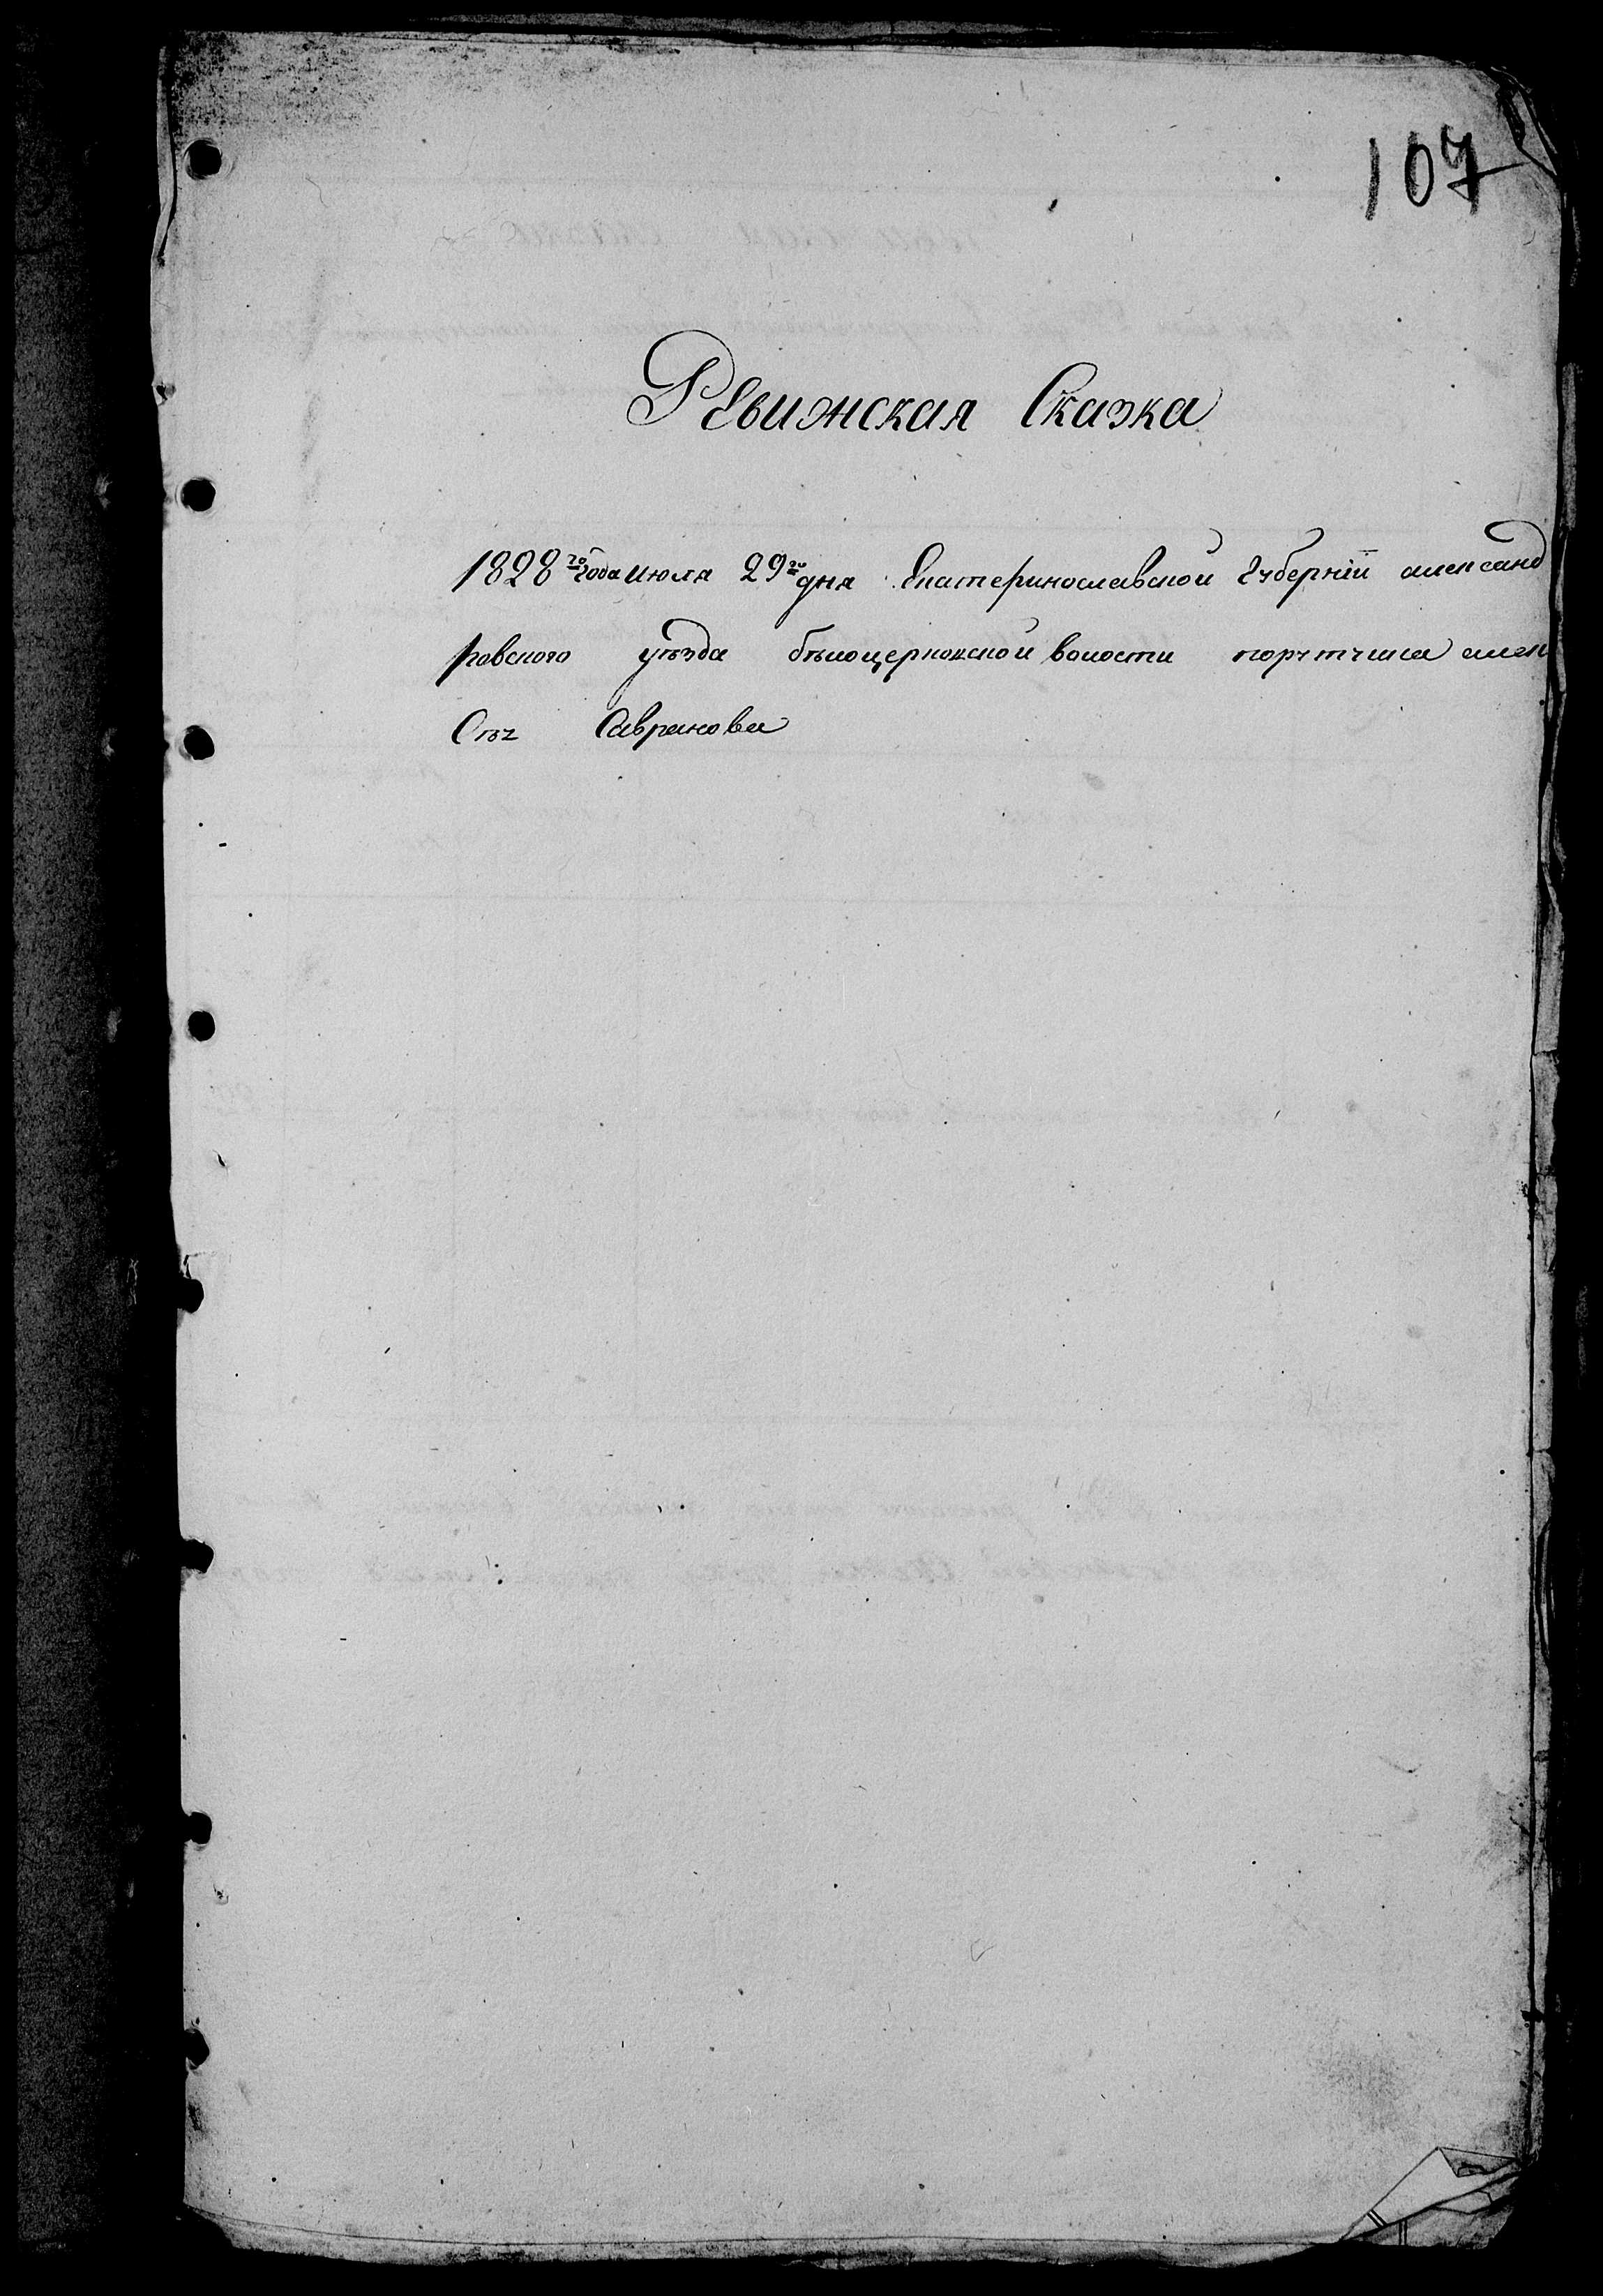 107
Ревижская Сказка
1828го года июля 29го дня Екатеринославской Губерніи александ
ровского уѣзда бѣлоцерковской волости порутчика алек
Сѣя Савранова